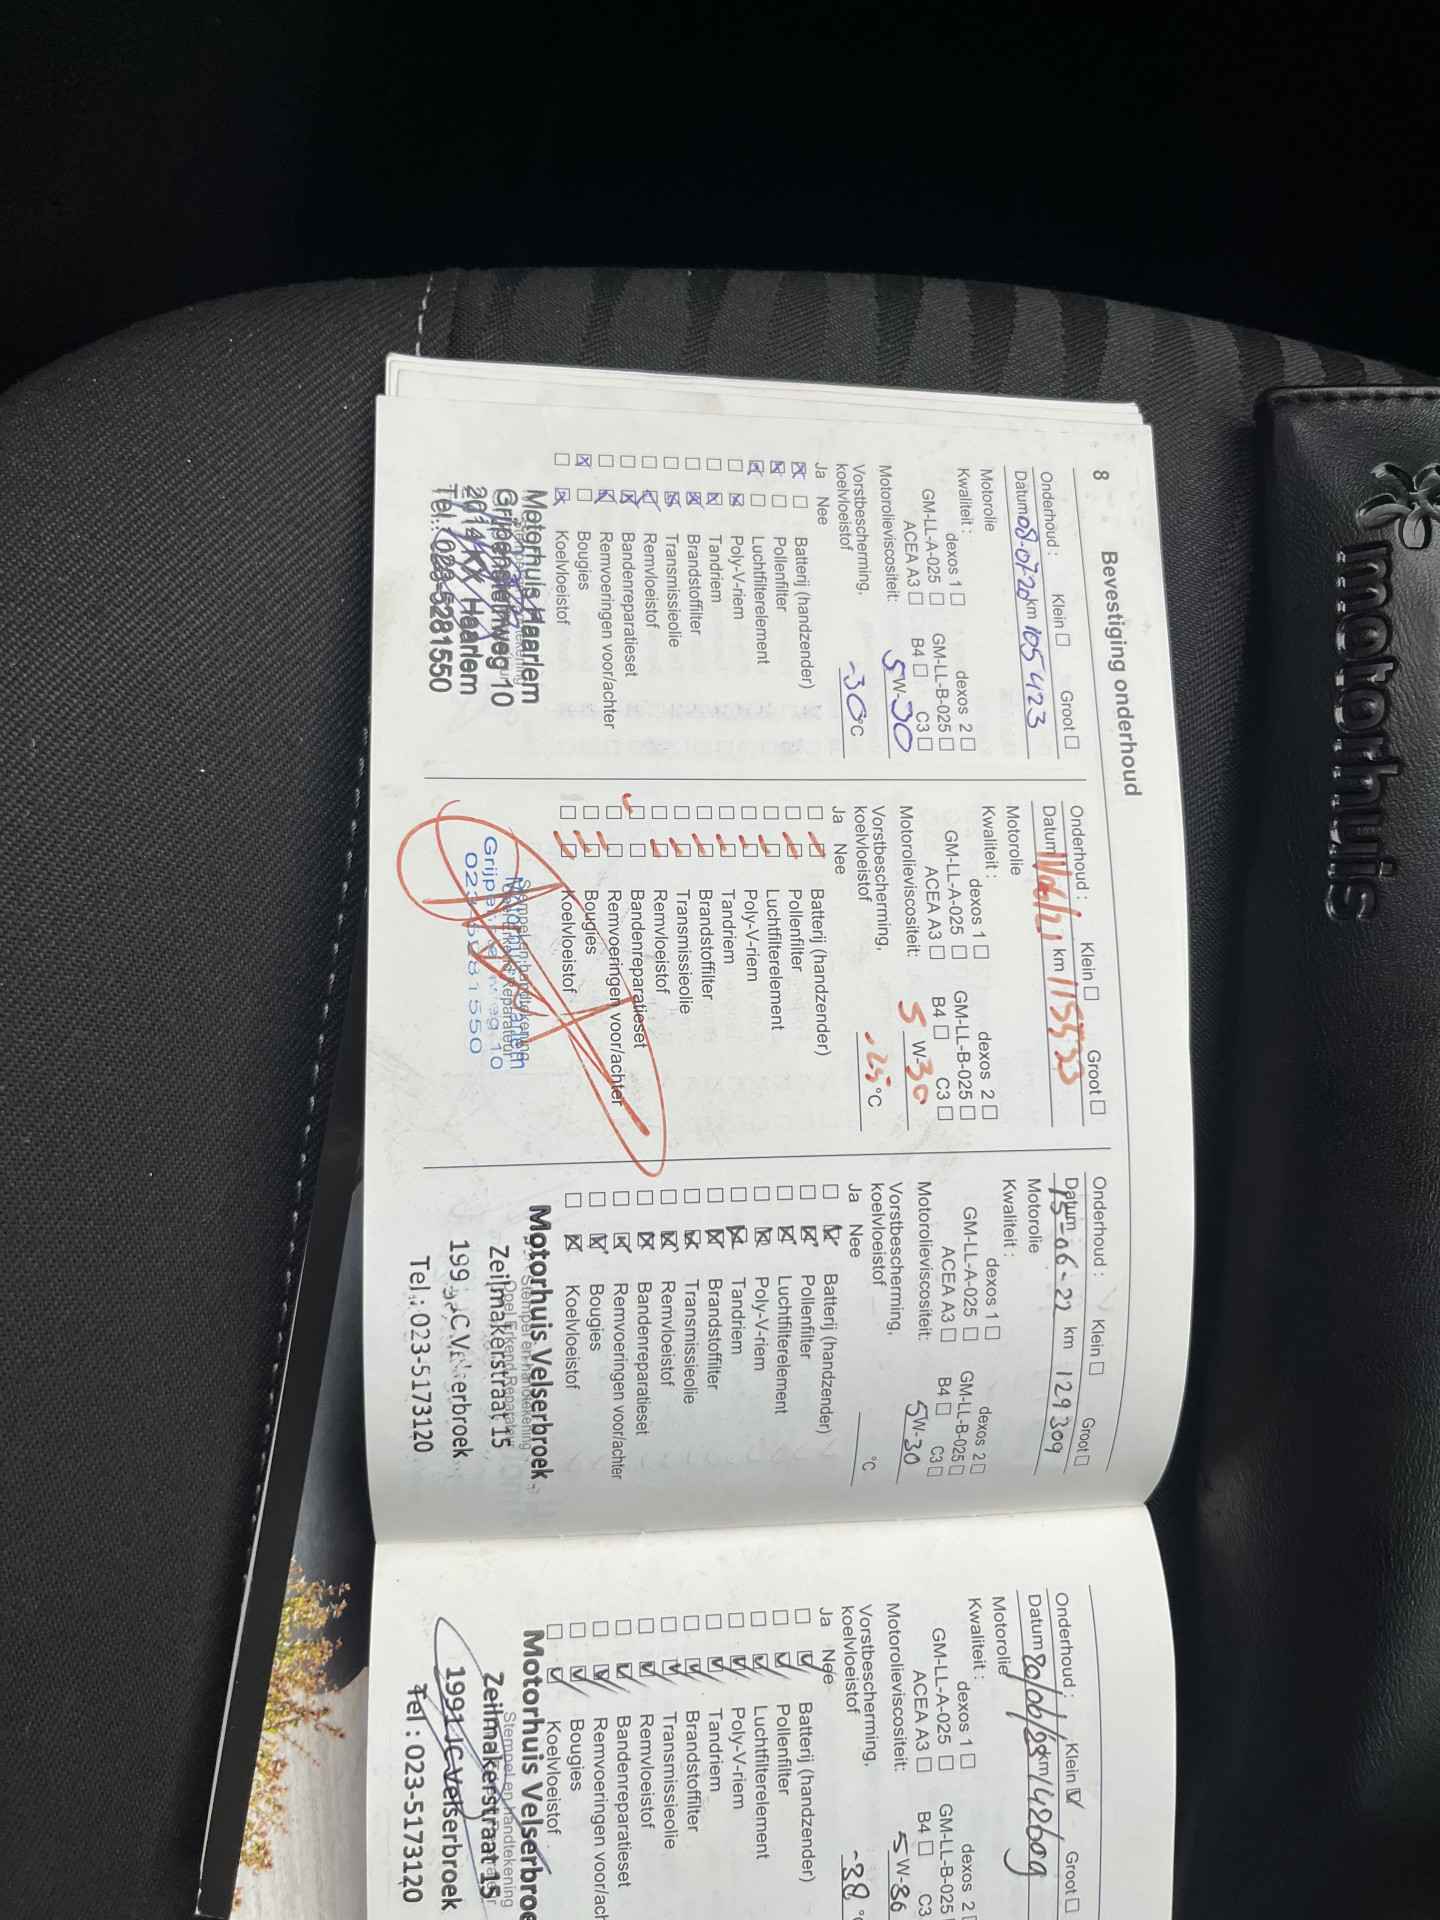 motorhuis
8 Bevestiging onderhoud
Onderhoud : Klein Groot
Datum 08-07-20 km 105423
Motorolie
Kwaliteit : dexos 1 dexos 2
GM-LL-A-025 GM-LL-B-025
ACEA A3 B4 C3
Motorolieviscositeit: 5 W-30
Vorstbescherming,
koelvloeistof -30 °C
Ja Nee
Batterij (handzender)
Pollenfilter
Luchtfilterelement
Poly-V-riem
Tandriem
Brandstoffilter
Transmissieolie
Remvloeistof
Bandenreparatieset
Remvoeringen voor/achter
Bougies
Koelvloeistof
Motorhuis Haarlem
Grijpensteinweg 10
2014 KX Haarlem
Tel.: 023-5281550
Onderhoud : Klein Groot
Datum km
Motorolie
Kwaliteit : dexos 1 dexos 2
GM-LL-A-025 GM-LL-B-025
ACEA A3 B4 C3
Motorolieviscositeit: 5 W-30
Vorstbescherming,
koelvloeistof -25 °C
Ja Nee
Batterij (handzender)
Pollenfilter
Luchtfilterelement
Poly-V-riem
Tandriem
Brandstoffilter
Transmissieolie
Remvloeistof
Bandenreparatieset
Remvoeringen voor/achter
Bougies
Koelvloeistof
Stempel en handtekening
Onderhoud : Klein Groot
Datum 15-06-22 km 129309
Motorolie
Kwaliteit : dexos 1 dexos 2
GM-LL-A-025 GM-LL-B-025
ACEA A3 B4 C3
Motorolieviscositeit: 5 W-30
Vorstbescherming,
koelvloeistof °C
Ja Nee
Batterij (handzender)
Pollenfilter
Luchtfilterelement
Poly-V-riem
Tandriem
Brandstoffilter
Transmissieolie
Remvloeistof
Bandenreparatieset
Remvoeringen voor/achter
Bougies
Koelvloeistof
Stempel en handtekening
Opel Erkend Reparateur
Motorhuis Velserbroek
Zeilmakerstraat 15
Tel : 023-5173120
Onderhoud : Klein Groot
Datum km 142609
Motorolie
Kwaliteit : dexos 1 dexos 2
GM-LL-A-025 GM-LL-B-025
ACEA A3 B4 C3
Motorolieviscositeit:
Vorstbescherming,
koelvloeistof -38
Ja Nee
Batterij (handzender)
Pollenfilter
Luchtfilterelement
Poly-V-riem
Tandriem
Brandstoffilter
Transmissieolie
Remvloeistof
Bandenreparatieset
Remvoeringen voor/ach
Bougies
Koelvloeistof
Stempel en handtekening
Motorhuis Velserbroe
Zeilmakerstraat 15
1991 JC Velserbroek
Tel : 023-5173120